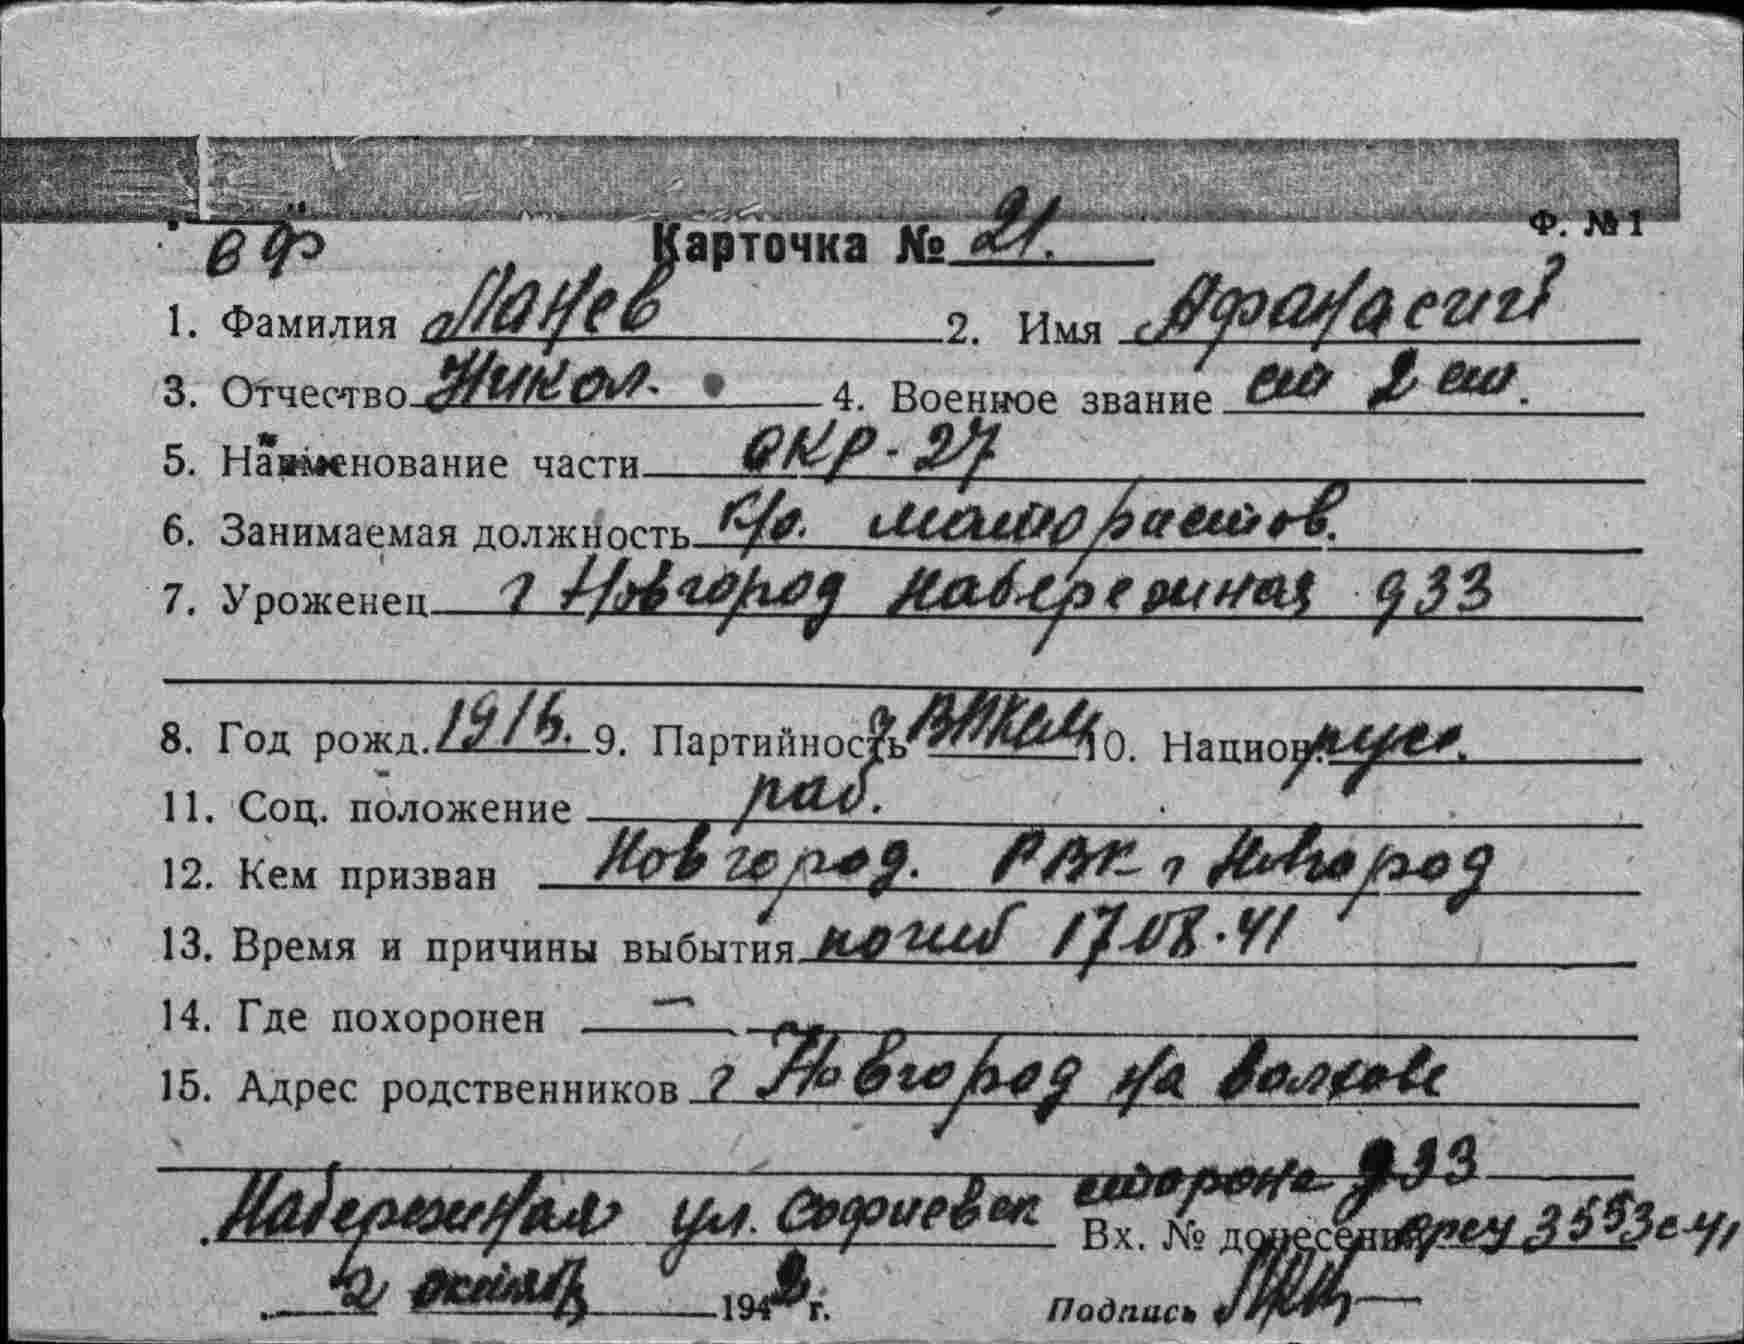 Ф. №1
вф Карточка № 21.
1. Фамилия Панев 2. Имя Афанасий
3. Отчество Никол. 4. Военное звание ст 2 ст.
5. Наименование части ОКР-27
6. Занимаемая должность к/о. мотористов.
7. Уроженец г Новгород набережная д 33
8. Год рожд. 1915. 9. Партийность ВЛКСМ 10. Национ. русс.
11. Соц. положение раб.
12. Кем призван Новгород. РВК г Новгород
13. Время и причины выбытия погиб 17.08.41
14. Где похоронен —
15. Адрес родственников г Новгород на Волхове
Набережная ул. Софиевск сторона д 33
Вх. № донесения 3553с-41
2 октяб 1942 г. Подпись